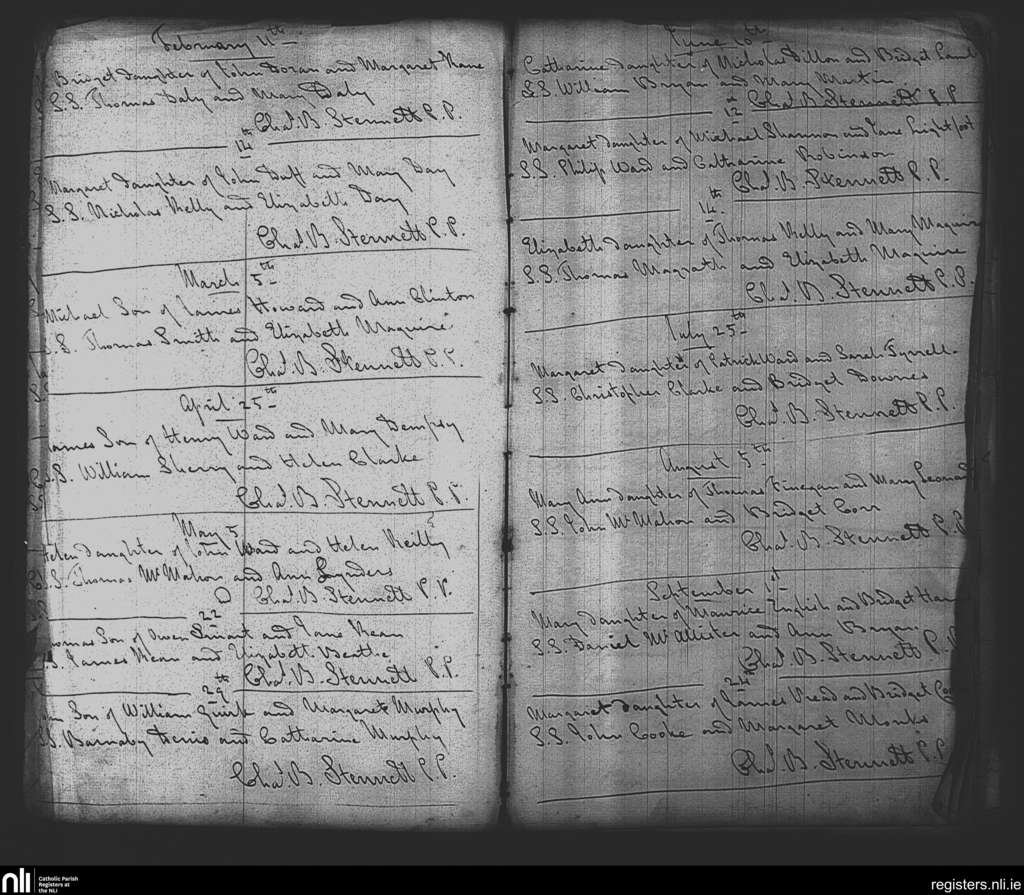 February 11th
Bridget Daughter of John Doran and Margaret Kane
S.S. Thomas Daly and Mary Daly
Chas. B. Stennett P.P.
14th
Margaret Daughter of John Duff and Mary Day
S.S. Nicholas Kelly and Elizabeth Day
Chas. B. Stennett P.P.
March 5th
Michael Son of James Howard and Ann Clinton
S.S. Thomas Smith and Elizabeth Maguire
Chas. B. Stennett P.P.
April 25th
James Son of Henry Ward and Mary Dempsey
S.S. William Sherry and Helen Clarke
Chas. B. Stennett P.P.
May 5
Helen Daughter of John Ward and Helen Reilly
S.S. Thomas McMahon and Ann Synders
Chas. B. Stennett P.P.
22
Thomas Son of Owen and Jane Kean
S.S. James Kean and Elizabeth Beattie
Chas. B. Stennett P.P.
29th
Son of William Quirk and Margaret Murphy
S.S. Barnaby Ferris and Catharine Murphy
Chas. B. Stennett P.P.
June 10th
Catharine Daughter of Nicholas Dillon and Bridget
S.S. William Bryan and Mary Martin
Chas. B. Stennett P.P.
12th
Margaret Daughter of Michael Shannon and Jane Lightfoot
S.S. Philip Ward and Catharine Robinson
Chas. B. Stennett P.P.
14th
Elizabeth Daughter of Thomas Kelly and Mary Maguire
S.S. Thomas Magrath and Elizabeth Maguire
Chas. B. Stennett P.P.
July 25th
Margaret Daughter of Patrick Ward and Sarah Tyrrell
S.S. Christopher Clarke and Bridget Downes
Chas. B. Stennett P.P.
August 5th
Mary Ann Daughter of Thomas Finegan and Mary Leonard
S.S. John McMahon and Bridget Corr
Chas. B. Stennett P.P.
September 1st
Mary Daughter of Maurice English and Bridget
S.S. Daniel McAllister and Ann Bryan
Chas. B. Stennett P.P.
24th
Margaret Daughter of James Read and Bridget
S.S. John Cooke and Margaret Monks
Chas. B. Stennett P.P.
nli
Catholic Parish
Registers at
the NLI
registers.nli.ie